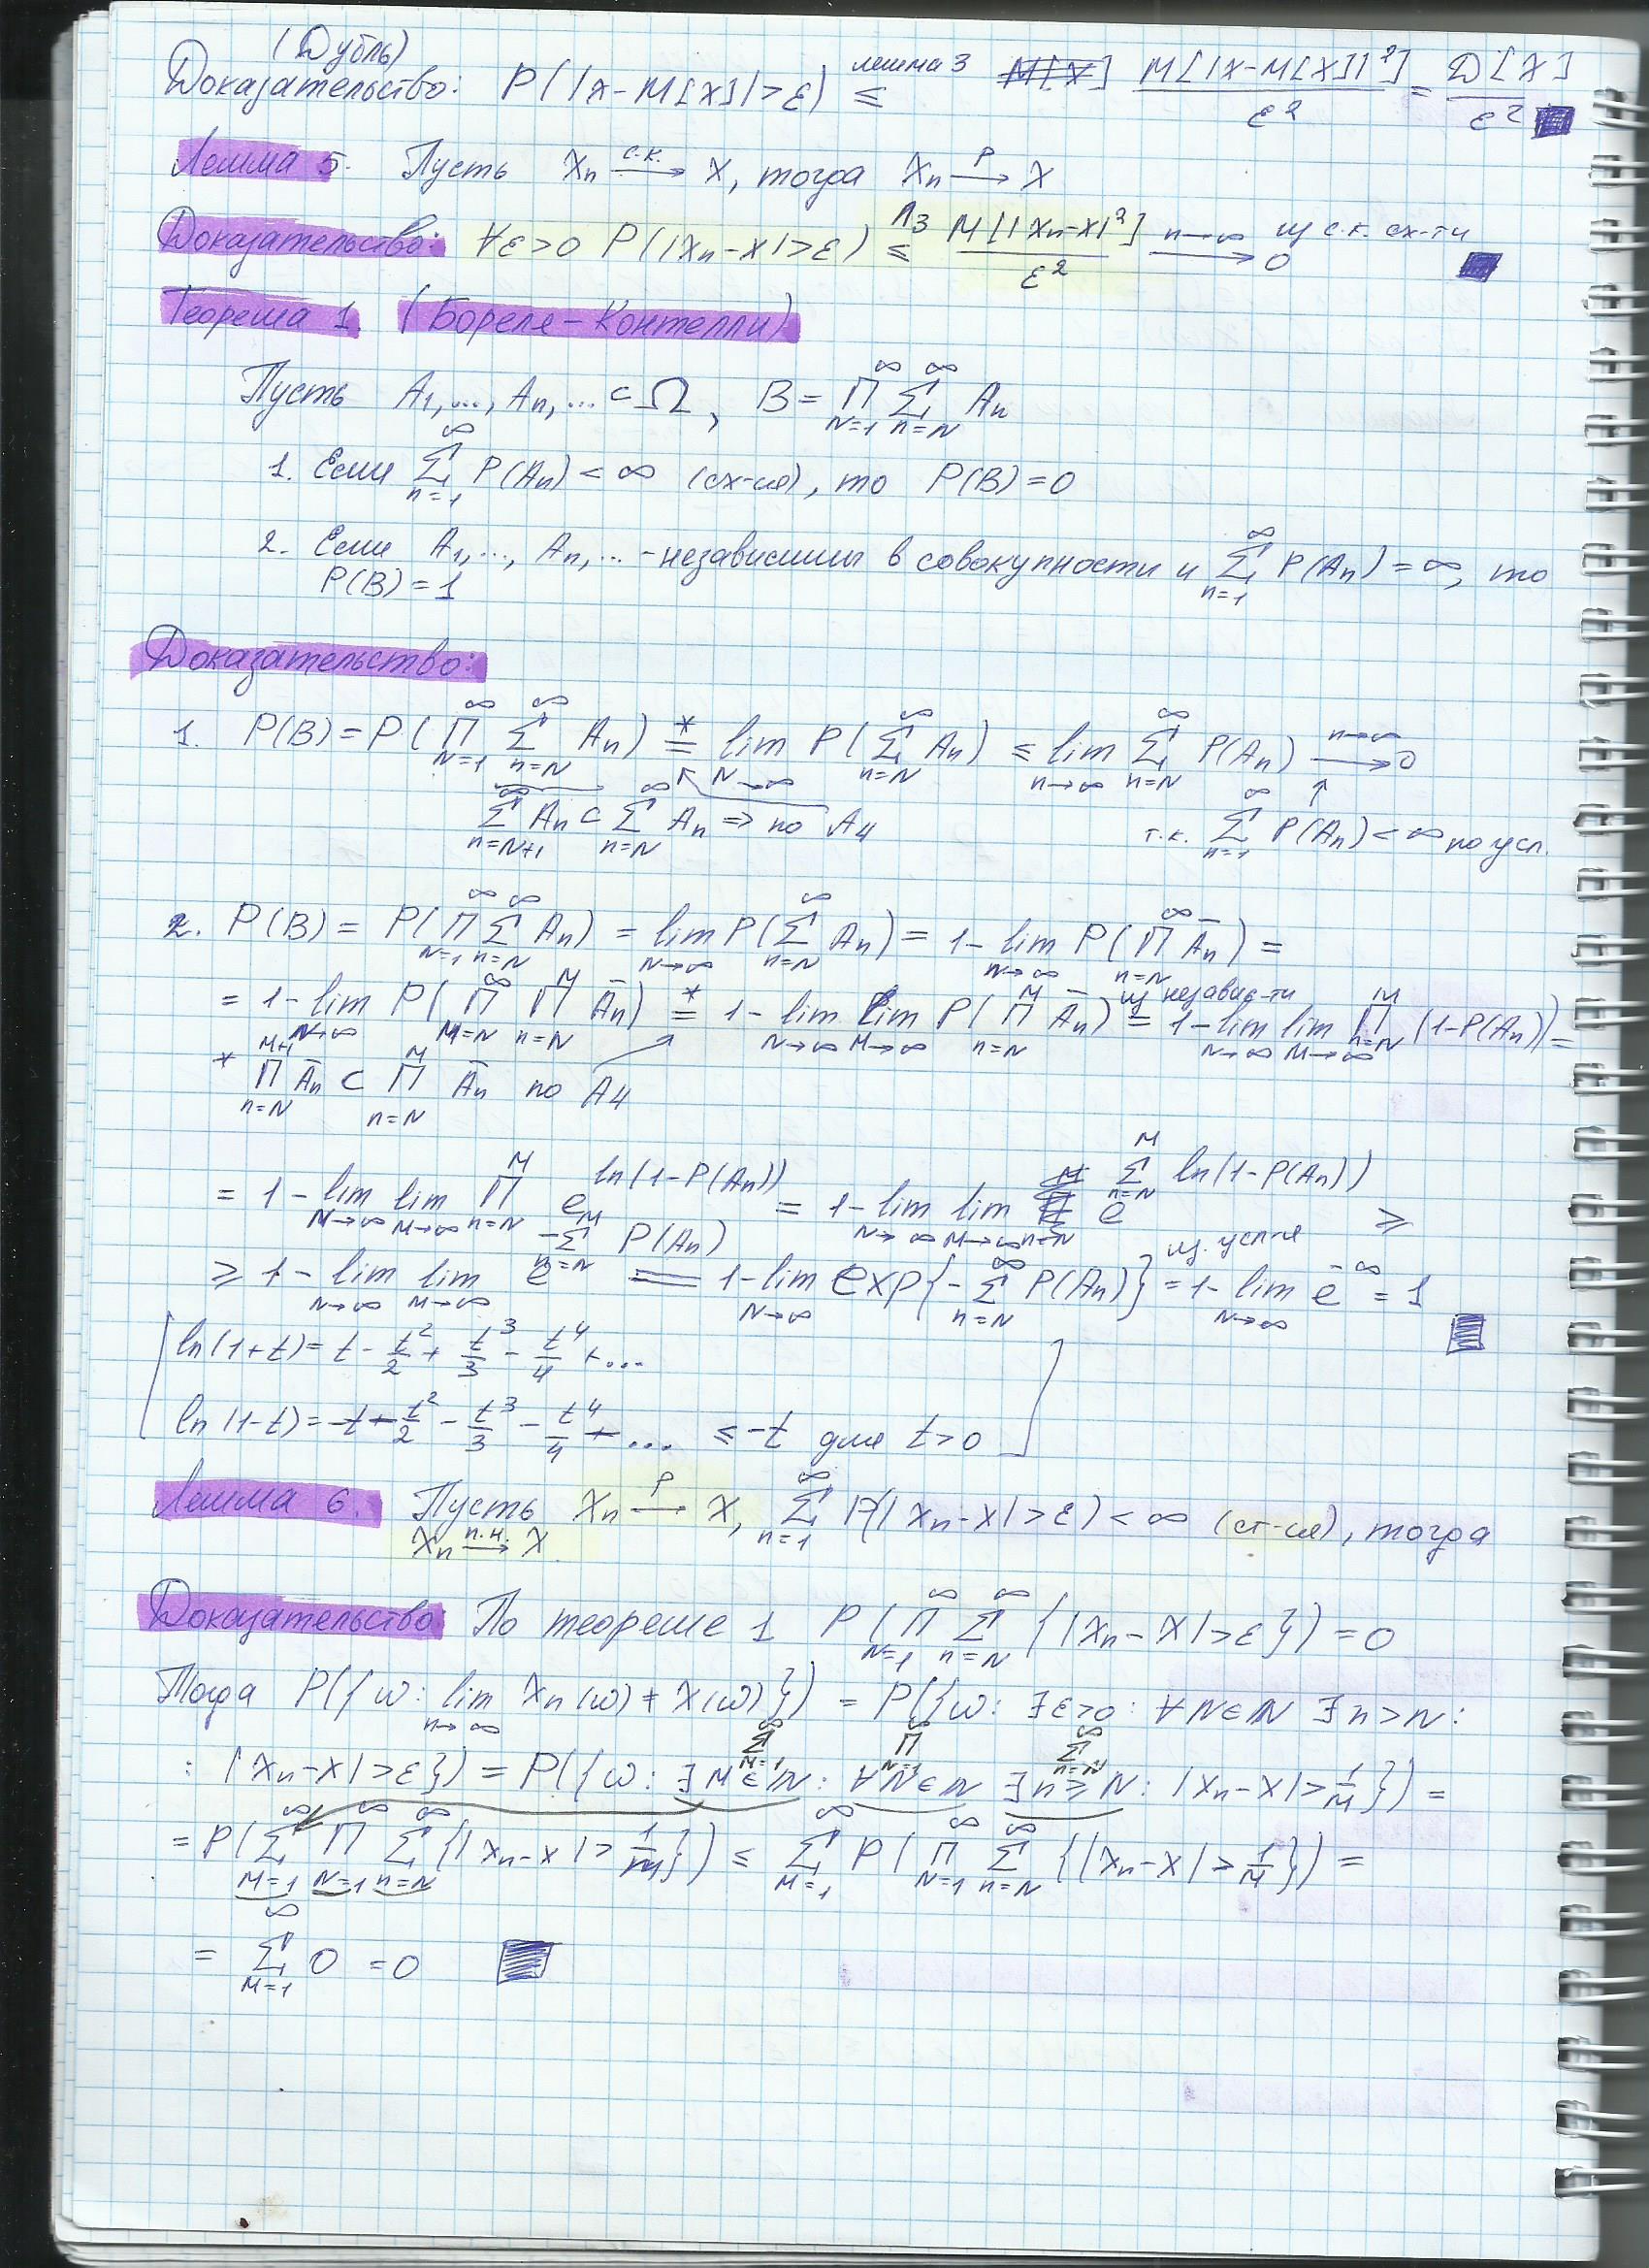 (Дубль)
Доказательство: P(|X-M[X]|>ε) ≤ (лемма 3) M[|X-M[X]|²]/ε² = D[X]/ε²
Лемма 5. Пусть Xn —с.к.→ X, тогда Xn —P→ X
Доказательство: ∀ε>0 P(|Xn-X|>ε) ≤ (Л3) M[|Xn-X|²]/ε² —n→∞→ 0 из с.к. сх-ти
Теорема 1. (Бореля-Кантелли)
Пусть A₁,..., An,... ⊂ Ω, B = ∏_{N=1}^∞ ∑_{n=N}^∞ An
1. Если ∑_{n=1}^∞ P(An) < ∞ (сх-ся), то P(B)=0
2. Если A₁,..., An,... - независимы в совокупности и ∑_{n=1}^∞ P(An) = ∞, то
P(B)=1
Доказательство:
1. P(B) = P(∏_{N=1}^∞ ∑_{n=N}^∞ An) =* lim_{N→∞} P(∑_{n=N}^∞ An) ≤ lim_{n→∞} ∑_{n=N}^∞ P(An) —n→∞→ 0
∑_{n=N+1}^∞ An ⊂ ∑_{n=N}^∞ An ⇒ по A4 т.к. ∑_{n=1}^∞ P(An) < ∞ по усл.
2. P(B) = P(∏_{N=1}^∞ ∑_{n=N}^∞ An) = lim_{N→∞} P(∑_{n=N}^∞ An) = 1 - lim_{N→∞} P(∏_{n=N}^∞ Ān) =
= 1 - lim_{N→∞} P(∏_{M=N}^∞ ∏_{n=N}^M Ān) =* 1 - lim_{N→∞} lim_{M→∞} P(∏_{n=N}^M Ān) = (из независ-ти) 1 - lim_{N→∞} lim_{M→∞} ∏_{n=N}^M (1-P(An)) =
* ∏_{n=N}^{M+1} Ān ⊂ ∏_{n=N}^M Ān по A4
= 1 - lim_{N→∞} lim_{M→∞} ∏_{n=N}^M e^{ln(1-P(An))} = 1 - lim_{N→∞} lim_{M→∞} e^{∑_{n=N}^M ln(1-P(An))} ≥
≥ 1 - lim_{N→∞} lim_{M→∞} e^{-∑_{n=N}^M P(An)} = 1 - lim_{N→∞} exp{-∑_{n=N}^∞ P(An)} = (из усл-я) 1 - lim_{N→∞} e^{-∞} = 1
ln(1+t) = t - t²/2 + t³/3 - t⁴/4 + ...
ln(1-t) = -t - t²/2 - t³/3 - t⁴/4 - ... ≤ -t для t>0
Лемма 6. Пусть Xn —P→ X, ∑_{n=1}^∞ P(|Xn-X|>ε) < ∞ (сх-ся), тогда
Xn —п.н.→ X
Доказательство: По теореме 1 P(∏_{N=1}^∞ ∑_{n=N}^∞ {|Xn-X|>ε}) = 0
Тогда P({ω: lim_{n→∞} Xn(ω) ≠ X(ω)}) = P({ω: ∃ε>0: ∀N∈ℕ ∃n>N:
: |Xn-X|>ε}) = P({ω: ∃M∈ℕ: ∀N∈ℕ ∃n≥N: |Xn-X|>1/M}) =
∑_{M=1}^∞ ∏_{N=1}^∞ ∑_{n=N}^∞
= P(∑_{M=1}^∞ ∏_{N=1}^∞ ∑_{n=N}^∞ {|Xn-X|>1/M}) ≤ ∑_{M=1}^∞ P(∏_{N=1}^∞ ∑_{n=N}^∞ {|Xn-X|>1/M}) =
= ∑_{M=1}^∞ 0 = 0